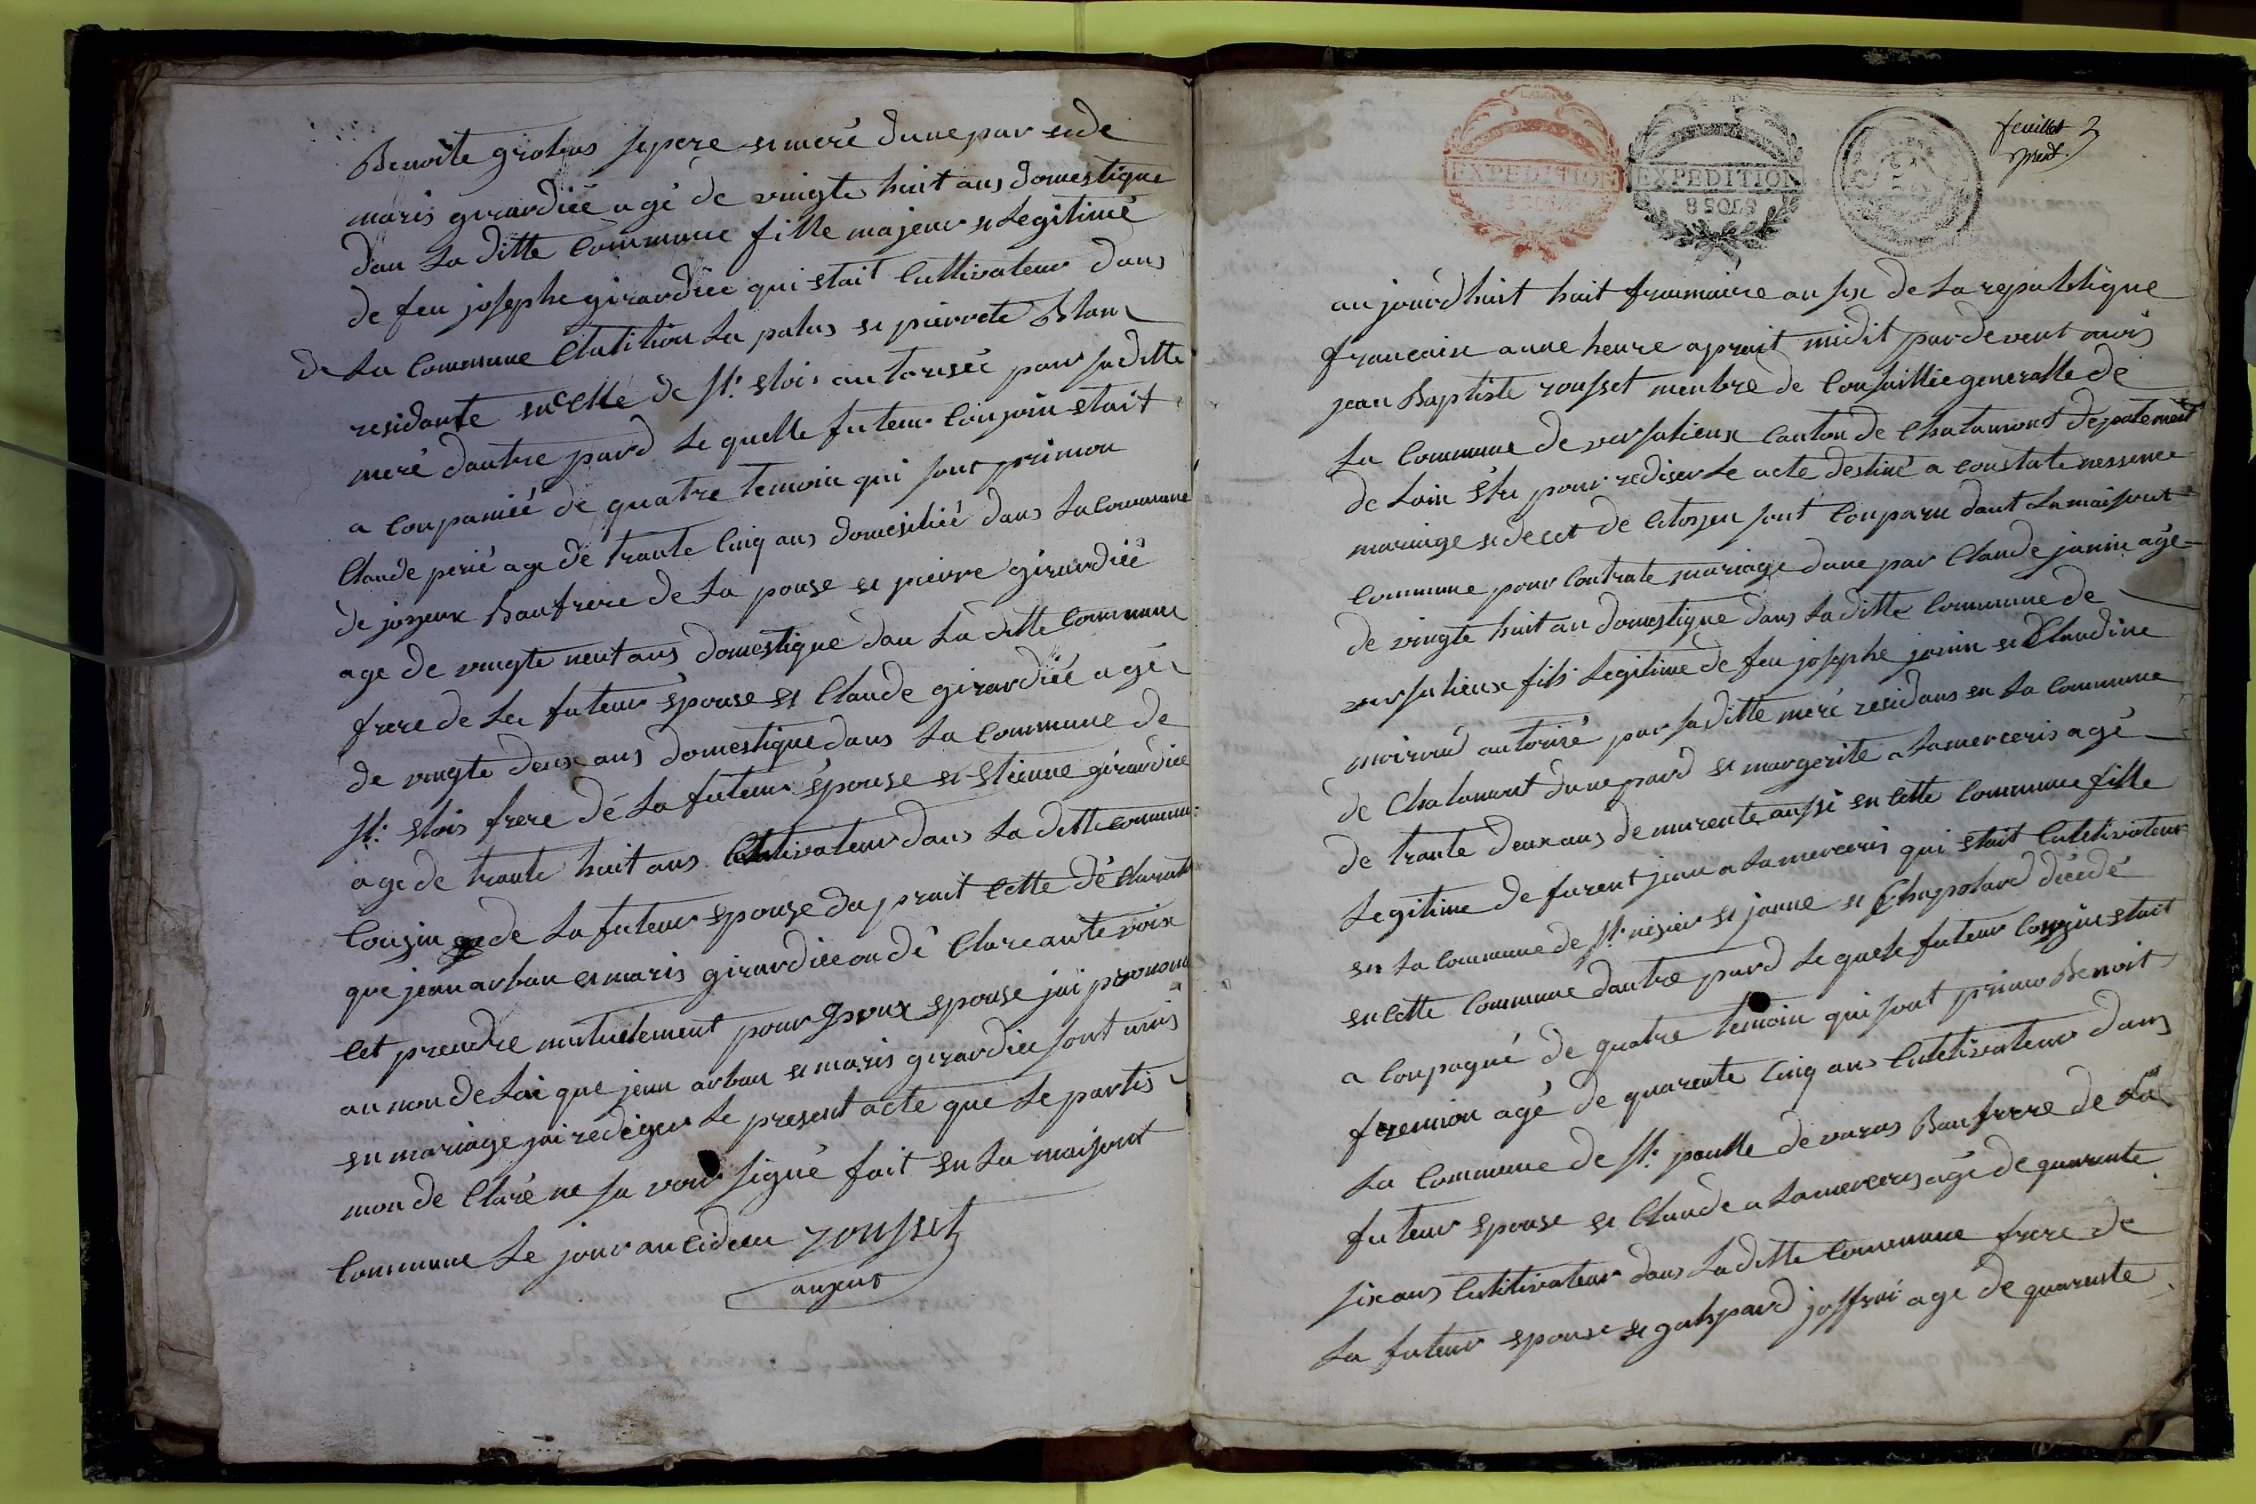 Benoite grobas se pere et mere dune par et de
maris girardiée agé de vingte huit ans domestique
dan La ditte Commune fille majeur et Legitimé
de feu josephe girardiée qui était Cultivateur dans
de La Commune Chatilion La palus et pierrete Blan
residante en celle de St. elois autorisée par sa ditte
meré dautre pard Le quelle futeur Conjoin etait
a Conpaniéé de quatre temoin qui sont primon
Claude perié age de trante Cinq ans domesiliéé dans La Commune
de joyeux Baufrere de La pouse et pierre girardiéé
age de vingte neut ans domestique dan La ditte Commune
frere de La futeur épouse et Claude girardiéé agé
de vingte deux ans domestique dans La Commune de
St. elois frere dé La futeur épouse et etienne girardiée
age de trante huit ans Cultivateur dans La ditte Commune
Cousin de La futeur epouse da prait Cette dé Clarate
que jean arban et maris girardiée on dé Clare aute voix
Cet prendre mutuelement pour Epoux epouse jai prononce
au non de Loi que jean arban et maris girardiée sont unis
en mariage jai rediger Le present acte que Le partis
mon de Claré ne sa voir signé fait en La maisont
Commune Le jour an cideu rousset
feuillet 3
EXPEDITION
EXPEDITION
8 SOLS
au jourdhuit huit frumaire an six de La republique
francaise a une heure aprait midit pardevent mois
jean Baptiste rousset menbre de Consaillie generalle de
La Commune de versalieux Canton de Chatamont depatement
de Lain élu pour rediser Le acte destiné a constate nessence
mariage et decet de Citoyen sont Conparu dant La maisont
Commune pour Contrate mariage dune par Claude janin agé
de vingte huit an domestique dans La ditte Commune de
versalieux fils Legitime de feu josephe janin et Claudine
moiroud autorisé par sa ditte meré residans en La Commune
de Chatamont dune pard et margerite a Lamerceris agé
de trante deux ans demurente aussi en Cette Commune fille
Legitime de furent jean a Lamerceris qui etait Cultivateur
en La Commune de St. nisier et janne et Chapolard décédé
en Cette Commune dautre pard Le quele futeur Conjoin etait
a Conpagné de quatre temoin qui sont primo Benoit
fremion agé de quarente Cinq ans Cultivateur dans
La Commune de St. paulle de varas Baufrere de La
futeur epouse et Claude a Lamerceris agé de quarente
six ans Cultivateur dans La ditte Commune frere de
La futeur epouse et galspard joffrai age de quarente